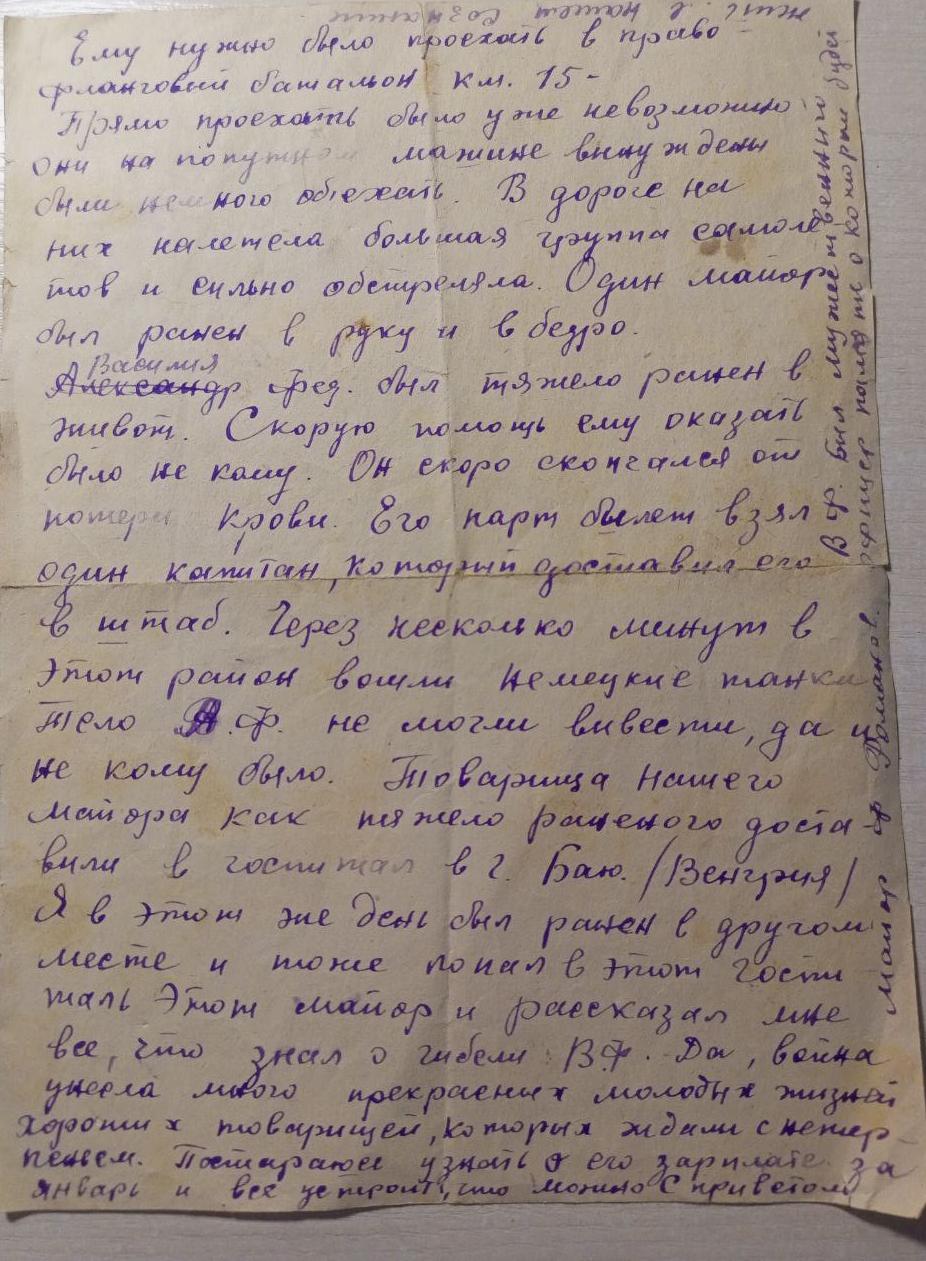 Ему нужно было проехать в право-
фланговий батальон км. 15-
Прямо проехать было уже невозможно
они на попутной машине вынуждены
были немного обехать. В дороге на
них налетела большая группа самоле
тов и сильно обстреляла. Один майор
был ранен в руку и в бедро.
Василия
Александр Фед. был тяжело ранен в
живот. Скорую помощь ему оказать
было не кому. Он скоро скончался от
потери крови. Его парт билет взял
один капитан, который доставил его
в штаб. Через несколько минут в
этот район вошли немецкие танки
Тело А.Ф. не могли вивести, да и
не кому было. Товарища нашего
майора как тяжело раненого доста-
вили в госпитал в г. Баю. /Венгрия/
Я в этот же день был ранен в другом
месте и тоже попал в этот госпи
таль Этот майор и рассказал мне
все, что знал о гибели В.Ф. Да, война
унесла много прекрасних молодых жизней
хороших товарищей, которых ждали с нетер-
пеньем. Постараюсь узнать о его зарплате за
январь и все устроить, что можно С приветом
майор Ф Романов.
В Ф. бил мужественний
офицер память о котором будет
жить в нашем сознании